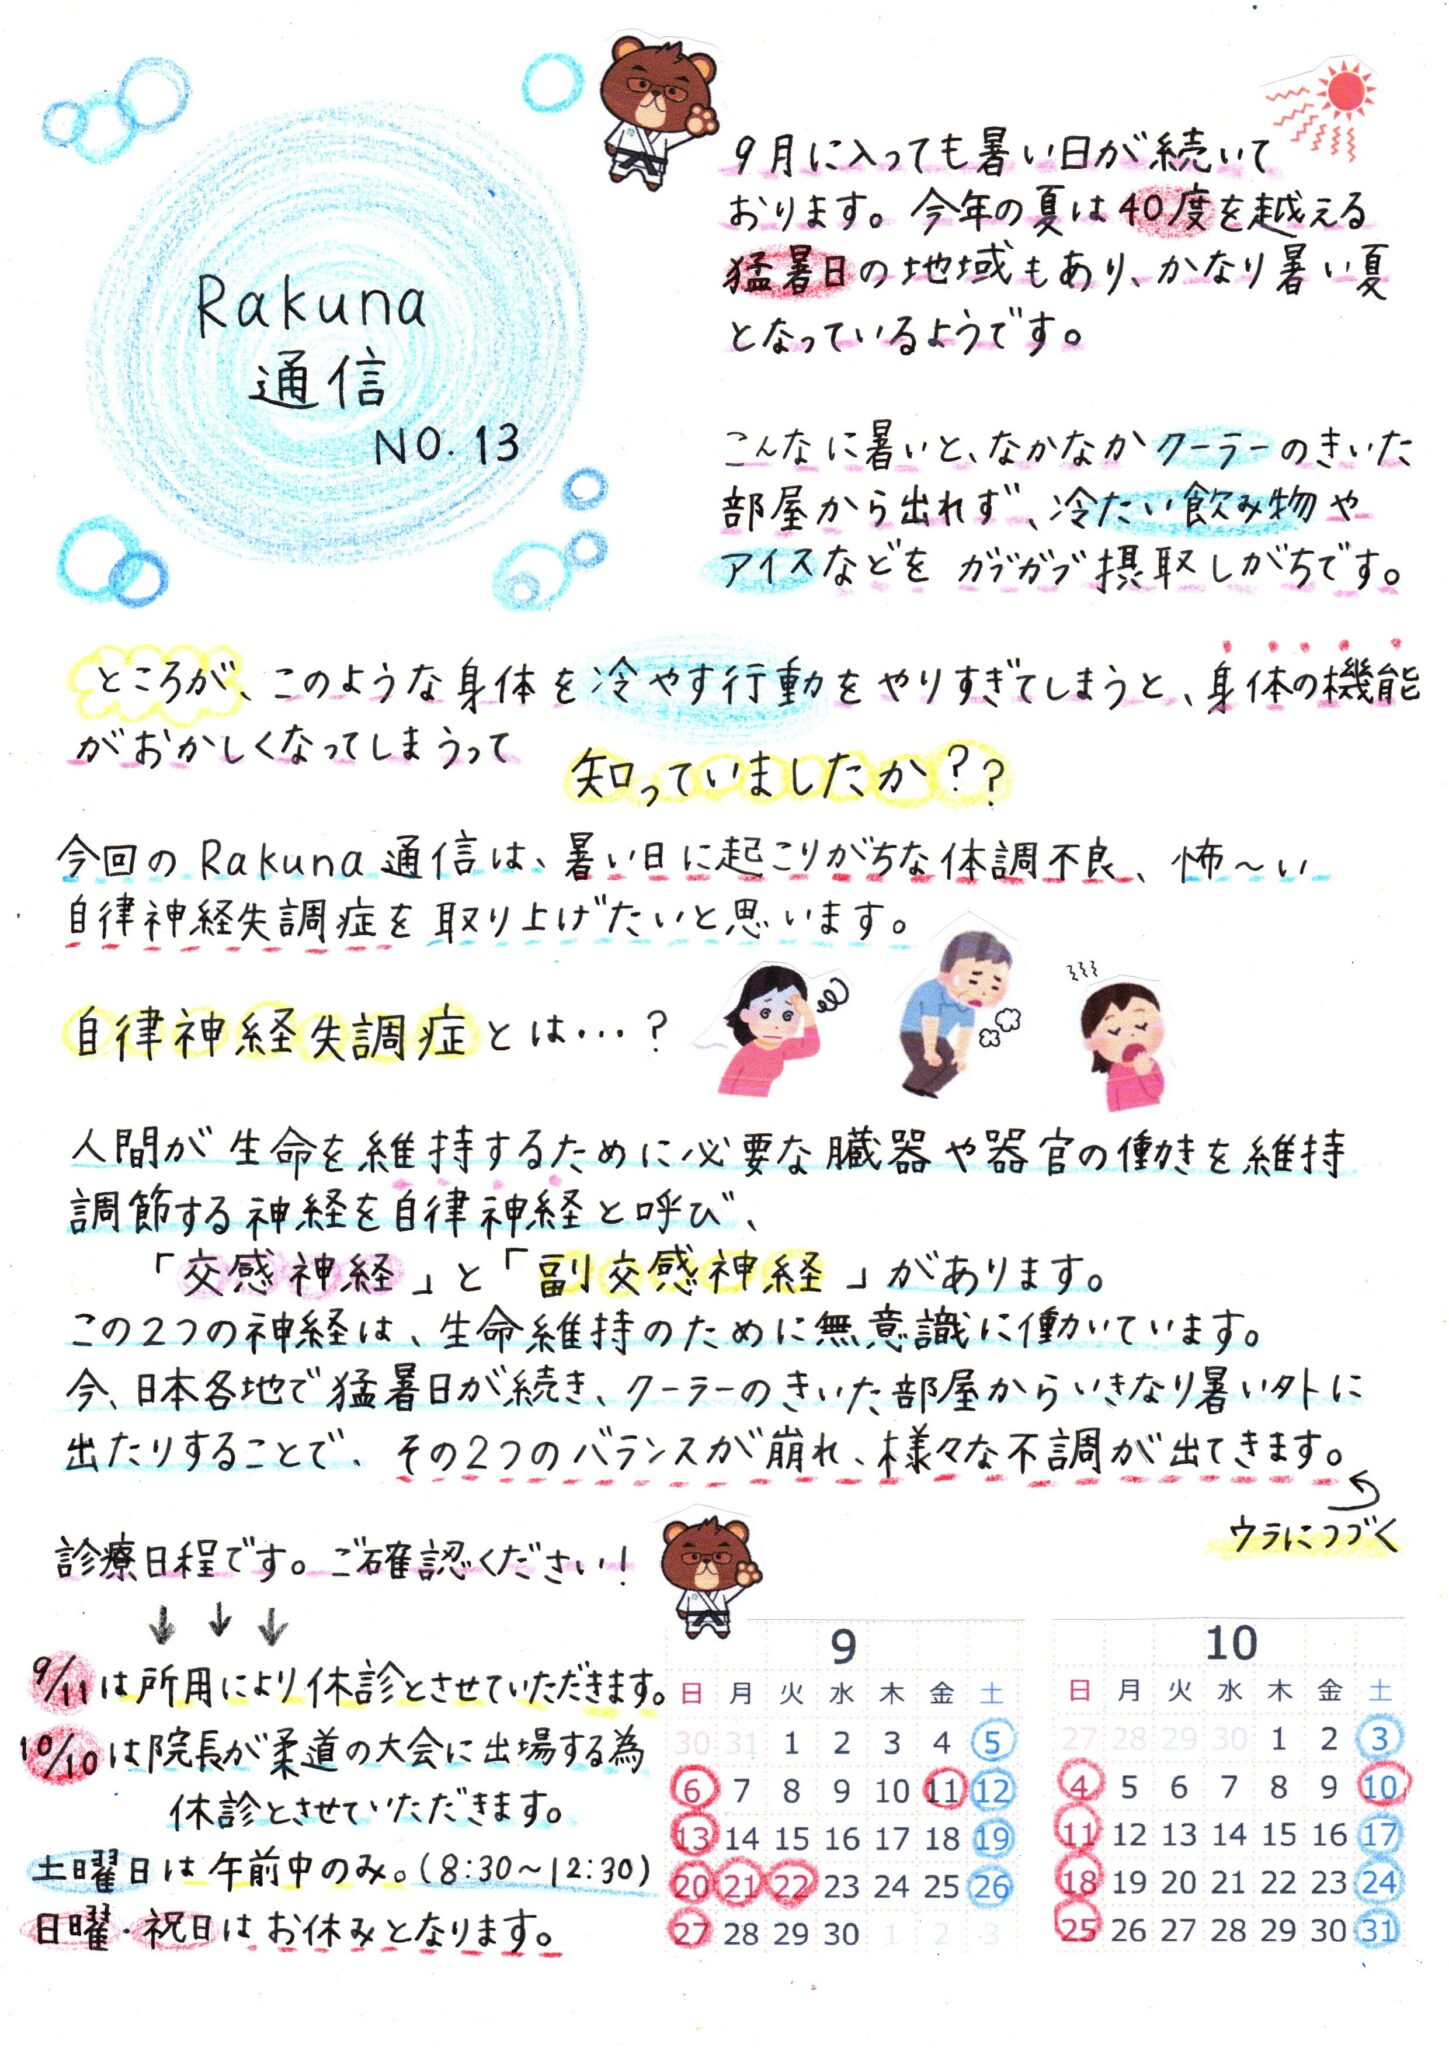 Rakuna
通信
NO.13
9月に入っても暑い日が続いて
おります。今年の夏は40度を越える
猛暑日の地域もあり、かなり暑い夏
となっているようです。
こんなに暑いと、なかなかクーラーのきいた
部屋から出れず、冷たい飲み物や
アイスなどをガブガブ摂取しがちです。
ところが、このような身体を冷やす行動をやりすぎてしまうと、身体の機能
がおかしくなってしまうって
知っていましたか??
今回のRakuna通信は、暑い日に起こりがちな体調不良、怖〜い
自律神経失調症を取り上げたいと思います。
自律神経失調症とは…?
人間が生命を維持するために必要な臓器や器官の働きを維持
調節する神経を自律神経と呼び、
「交感神経」と「副交感神経」があります。
この2つの神経は、生命維持のために無意識に働いています。
今、日本各地で猛暑日が続き、クーラーのきいた部屋からいきなり暑い外に
出たりすることで、その2つのバランスが崩れ、様々な不調が出てきます。
ウラにつづく
診療日程です。ご確認ください!
↓ ↓ ↓
9/11は所用により休診とさせていただきます。
10/10は院長が柔道の大会に出場する為
休診とさせていただきます。
土曜日は午前中のみ。(8:30〜12:30)
日曜・祝日はお休みとなります。
9
日 月 火 水 木 金 土
30 31 1 2 3 4 5
6 7 8 9 10 11 12
13 14 15 16 17 18 19
20 21 22 23 24 25 26
27 28 29 30 1 2 3
10
日 月 火 水 木 金 土
27 28 29 30 1 2 3
4 5 6 7 8 9 10
11 12 13 14 15 16 17
18 19 20 21 22 23 24
25 26 27 28 29 30 31